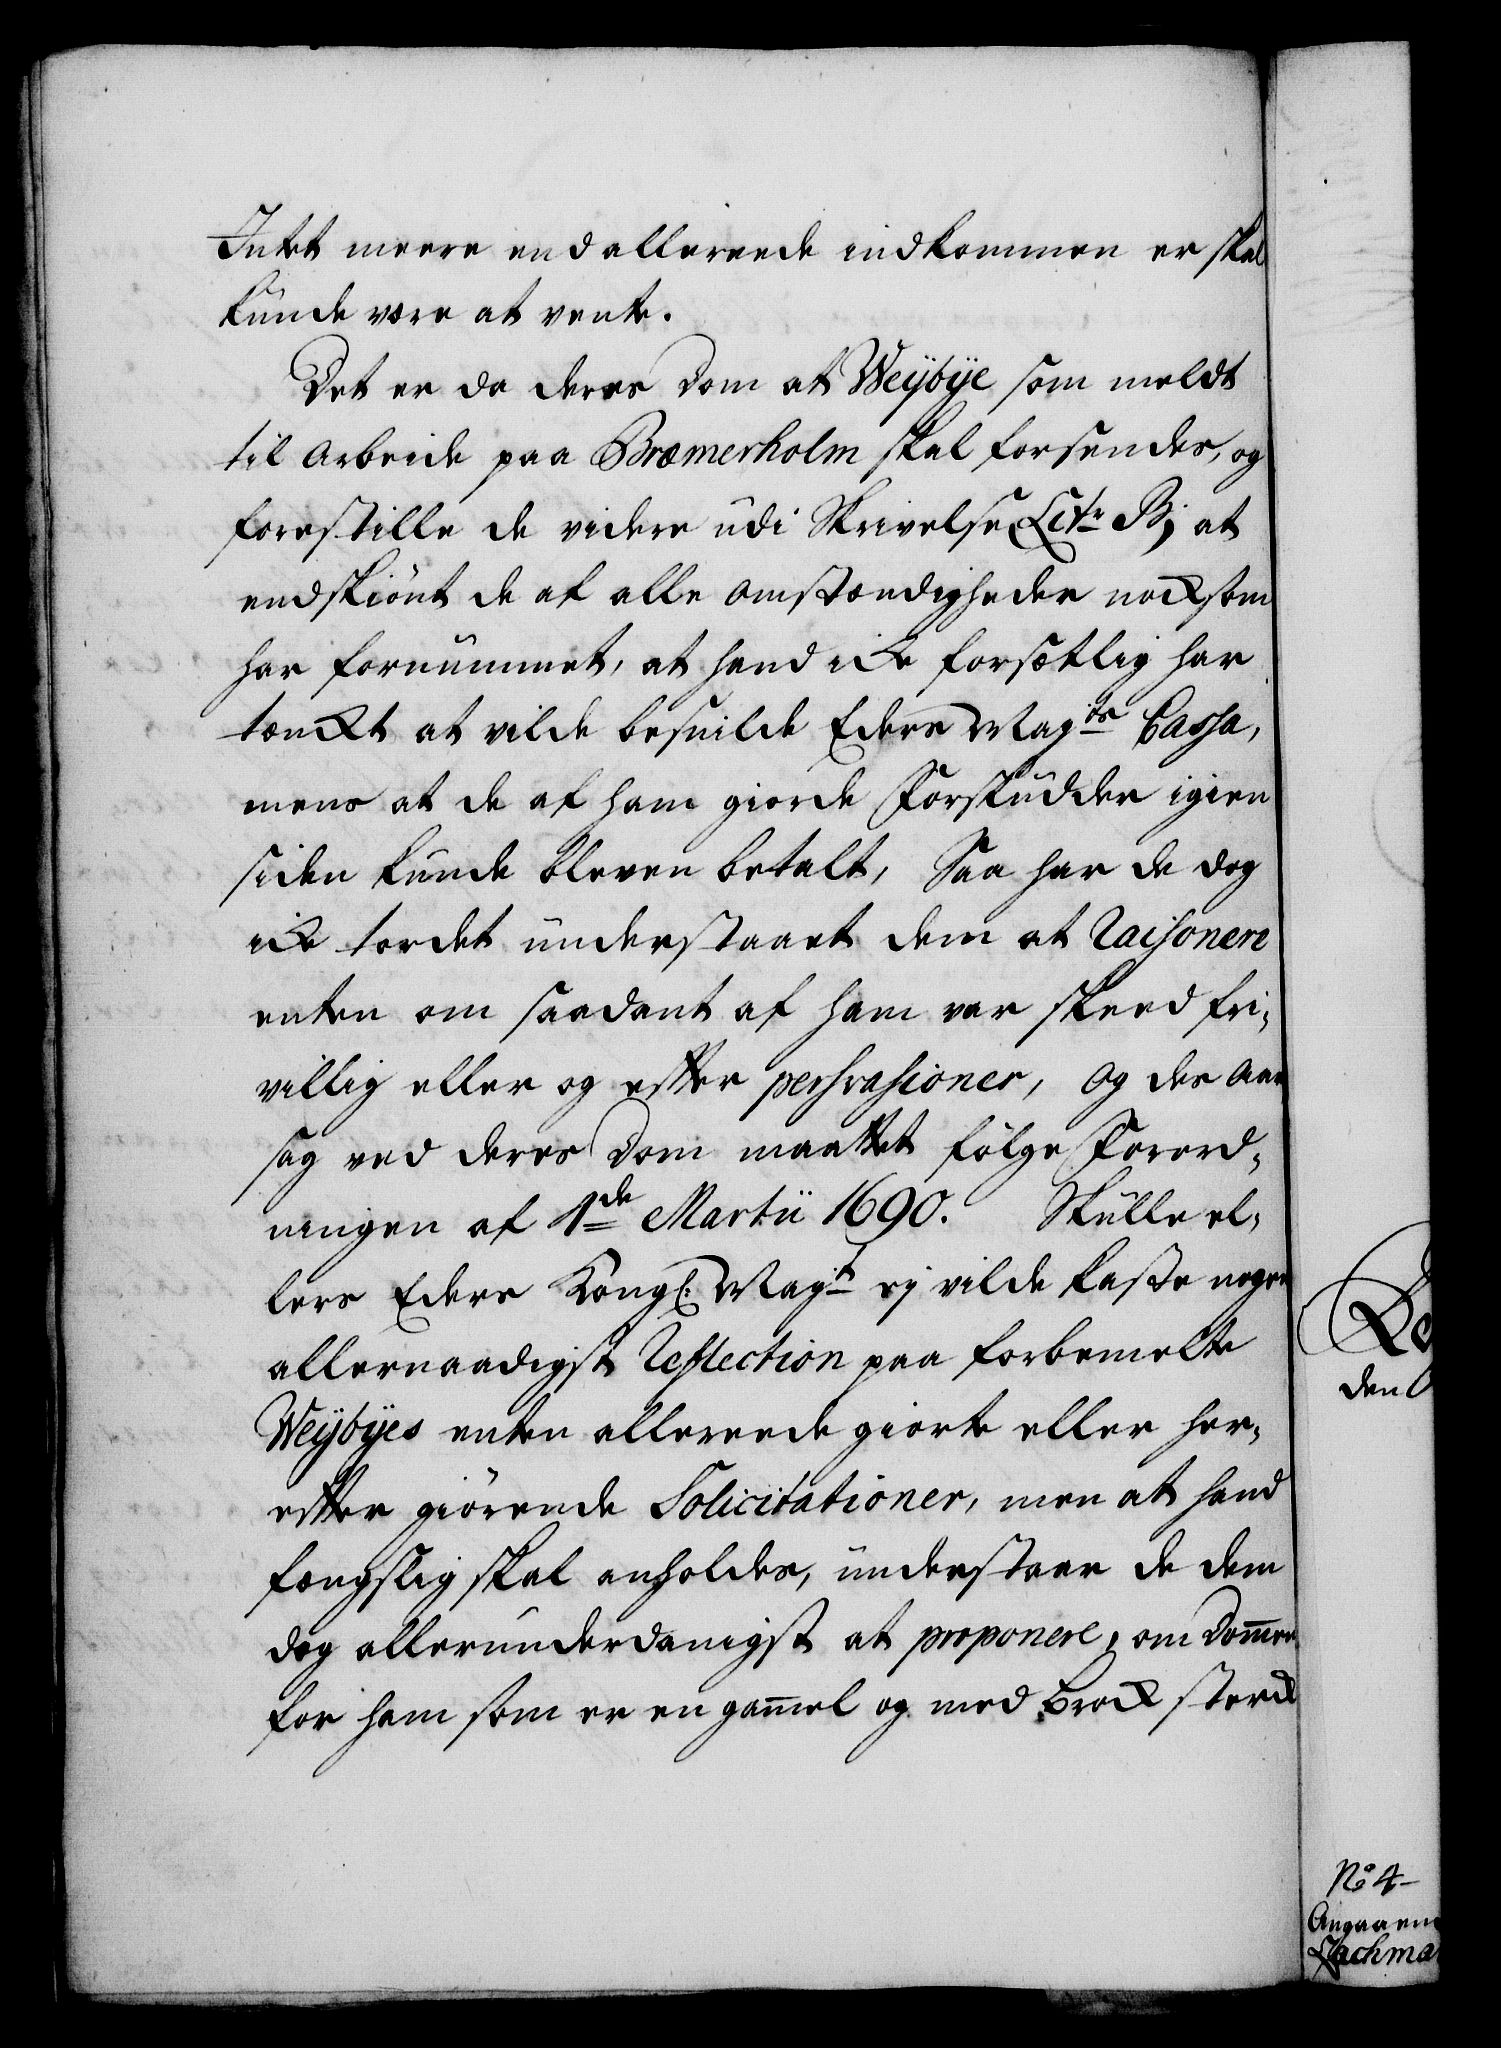 Intet meere end allereede indkommen er skal
kunde være at vente.
Det er da deres Dom at Weÿbÿe som meldt
til Arbeide paa Bremerholm skal forsendes, og
forestille de videre udi Skrivelse Litr B; at
endskiönt de af alle Omstændigheder nocksom
har fornummet, at hand icke forsætlig har
tænckt at vilde besnilde Eders Mayts Cassa,
mens at de af ham giorde Forskudder igien
siden kunde bleven betalt, Saa har de dog
icke tordet understaaet dem at Raisonere
enten om saadant af ham var skeed fri-
villig eller og efter persvasioner, Og des Aar
sag ved deres Dom maattet fölge Forord-
ningen af 1de Martii 1690. Skulle el-
lers Eders Kongl: Mayt ej vilde kaste nogen
allernaadigst Reflection paa forbemelte
Weÿbÿes enten allereede giorte eller her-
efter giörende Solicitationer, men at hand
fængslig skal anholdes, understaar de dem
dog allerunderdanigst at proponere, om Dommen
for ham som er en gammel og med Brock sterck
Re
den
No 4
Angaaen
Lachma